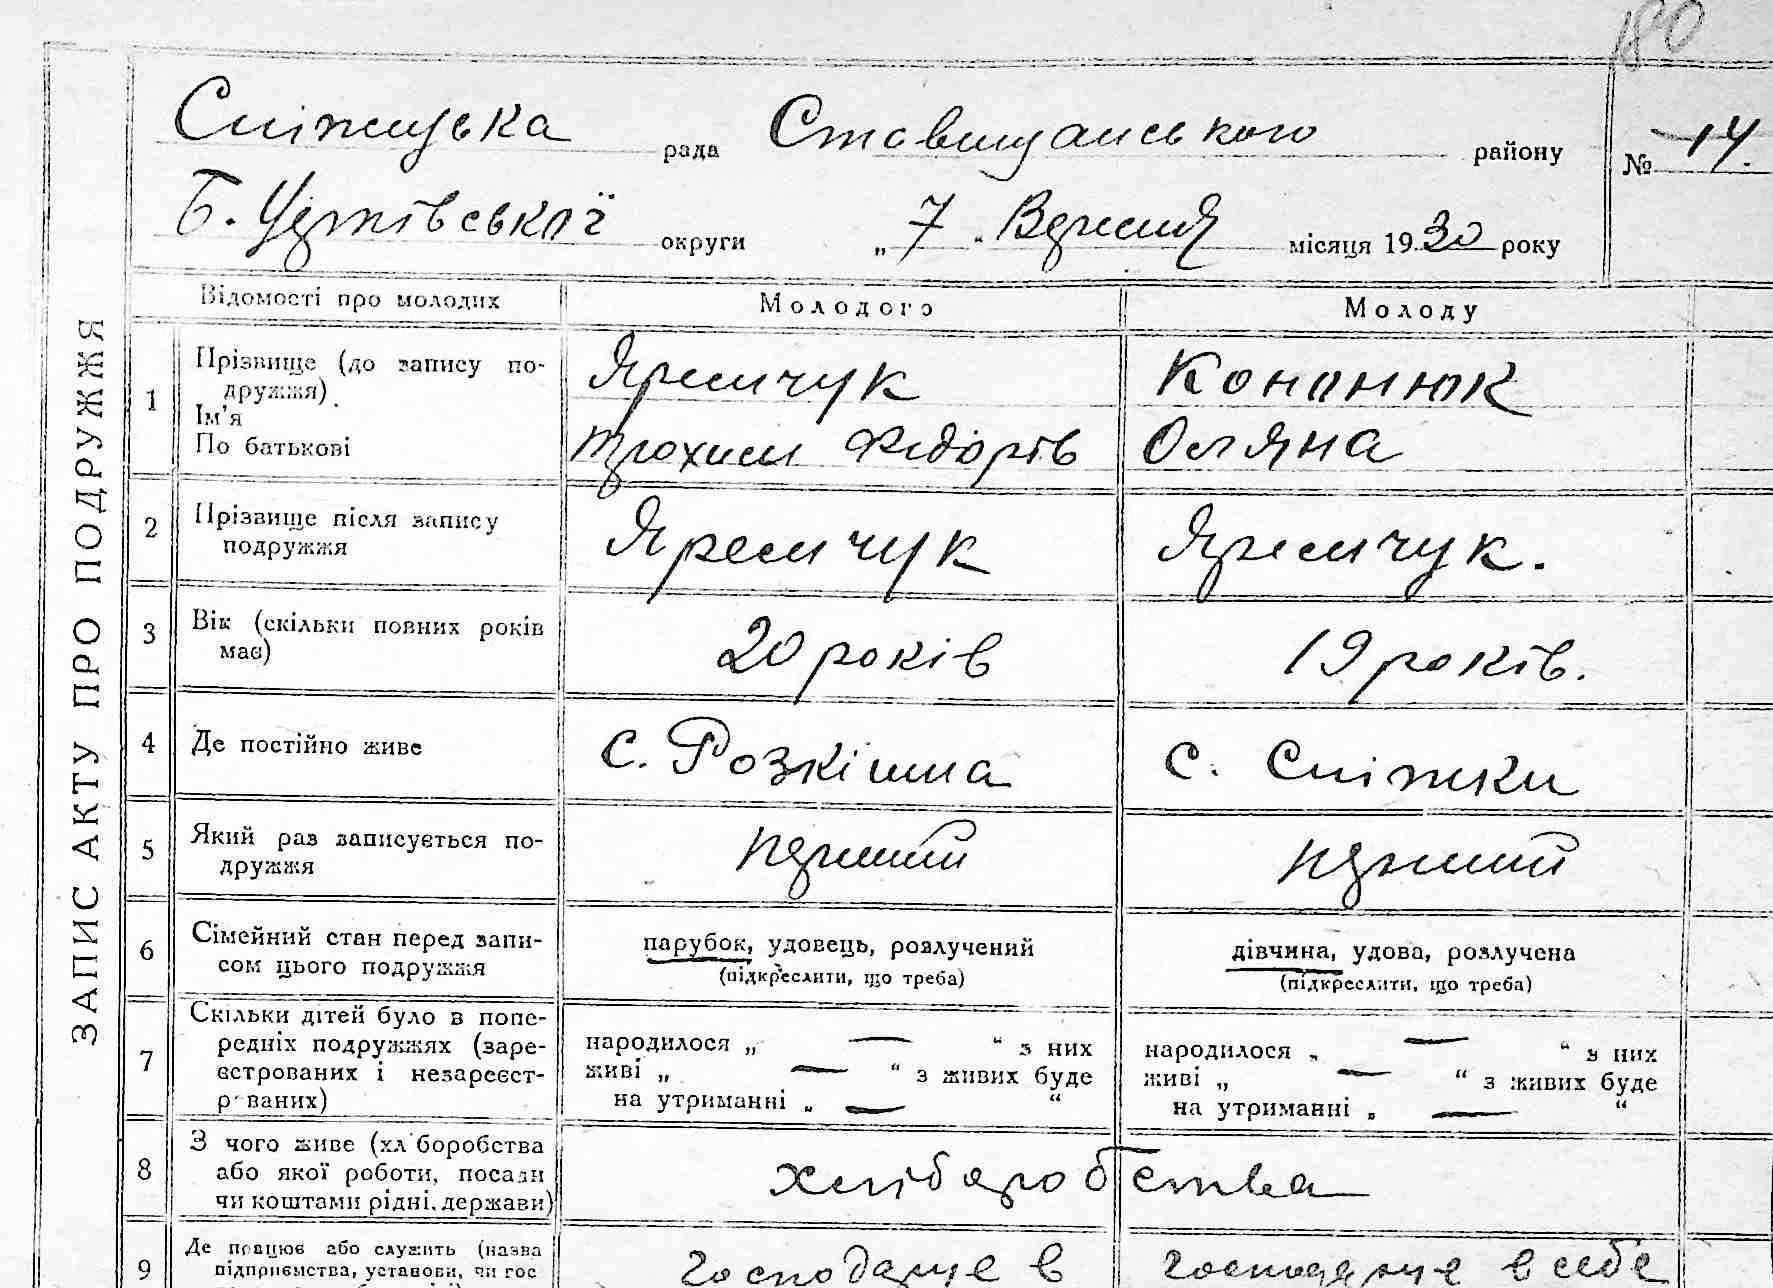 180
Сніжицька рада Ставищанського району № 14.
Б. Церківської округи „7“ Вересня місяця 1930 року
ЗАПИС АКТУ ПРО ПОДРУЖЖЯ
Відомості про молодих Молодого Молоду
1 Прізвище (до запису по-
дружжя) Яремчук Кононюк
Ім'я
По батькові Трохим Федорів Оляна
2 Прізвище після запису
подружжя Яремчук Яремчук.
3 Вік (скільки повних років
має) 20 років 19 років.
4 Де постійно живе с. Розкішна с. Сніжки
5 Який раз записується по-
дружжя перший перший
6 Сімейний стан перед запи-
сом цього подружжя парубок, удовець, розлучений дівчина, удова, розлучена
(підкреслити, що треба) (підкреслити, що треба)
7 Скільки дітей було в попе-
редніх подружжях (заре-
єстрованих і незареєст-
рованих) народилося „ — “ з них народилося „ — “ з них
живі „ — “ з живих буде живі „ — “ з живих буде
на утриманні „ — “ на утриманні „ — “
8 З чого живе (хліборобства
або якої роботи, посади
чи коштами рідні, держави) хліборобства
9 Де працює або служить (назва
підприємства, установи, чи гос господарює в господарює в себе